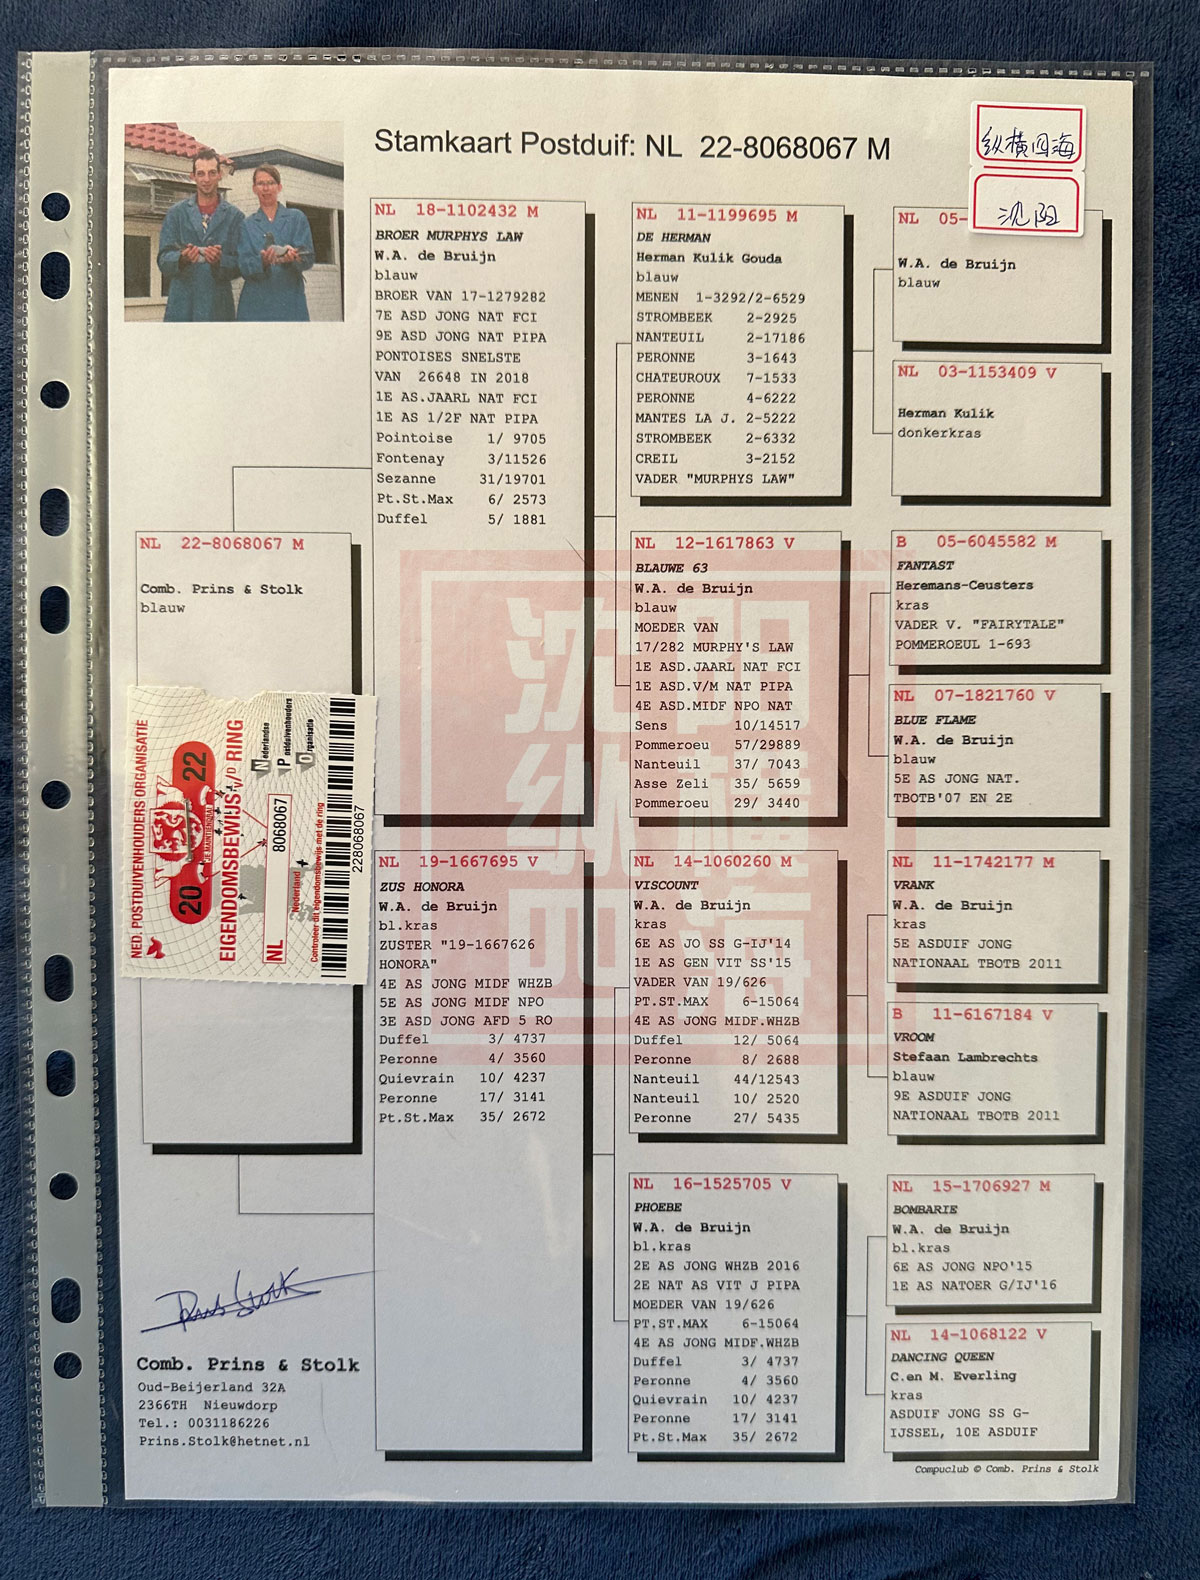 Stamkaart Postduif: NL 22-8068067 M
纵横四海
沈阳
NL 22-8068067 M
Comb. Prins & Stolk
blauw
NED. POSTDUIVENHOUDERS ORGANISATIE
20 22
JE MAINTIENDRAI
EIGENDOMSBEWIJS v/d RING
NL 8068067
Nederland
Controleer dit eigendomsbewijs met de ring
Nederlandse
Postduivenhouders
Organisatie
228068067
NL 18-1102432 M
BROER MURPHYS LAW
W.A. de Bruijn
blauw
BROER VAN 17-1279282
7E ASD JONG NAT FCI
9E ASD JONG NAT PIPA
PONTOISES SNELSTE
VAN 26648 IN 2018
1E AS.JAARL NAT FCI
1E AS 1/2F NAT PIPA
Pointoise 1/ 9705
Fontenay 3/11526
Sezanne 31/19701
Pt.St.Max 6/ 2573
Duffel 5/ 1881
NL 19-1667695 V
ZUS HONORA
W.A. de Bruijn
bl.kras
ZUSTER "19-1667626
HONORA"
4E AS JONG MIDF WHZB
5E AS JONG MIDF NPO
3E ASD JONG AFD 5 RO
Duffel 3/ 4737
Peronne 4/ 3560
Quievrain 10/ 4237
Peronne 17/ 3141
Pt.St.Max 35/ 2672
NL 11-1199695 M
DE HERMAN
Herman Kulik Gouda
blauw
MENEN 1-3292/2-6529
STROMBEEK 2-2925
NANTEUIL 2-17186
PERONNE 3-1643
CHATEUROUX 7-1533
PERONNE 4-6222
MANTES LA J. 2-5222
STROMBEEK 2-6332
CREIL 3-2152
VADER "MURPHYS LAW"
NL 12-1617863 V
BLAUWE 63
W.A. de Bruijn
blauw
MOEDER VAN
17/282 MURPHY'S LAW
1E ASD.JAARL NAT FCI
1E ASD.V/M NAT PIPA
4E ASD.MIDF NPO NAT
Sens 10/14517
Pommeroeu 57/29889
Nanteuil 37/ 7043
Asse Zeli 35/ 5659
Pommeroeu 29/ 3440
NL 14-1060260 M
VISCOUNT
W.A. de Bruijn
kras
6E AS JO SS G-IJ'14
1E AS GEN VIT SS'15
VADER VAN 19/626
PT.ST.MAX 6-15064
4E AS JONG MIDF.WHZB
Duffel 12/ 5064
Peronne 8/ 2688
Nanteuil 44/12543
Nanteuil 10/ 2520
Peronne 27/ 5435
NL 16-1525705 V
PHOEBE
W.A. de Bruijn
bl.kras
2E AS JONG WHZB 2016
2E NAT AS VIT J PIPA
MOEDER VAN 19/626
PT.ST.MAX 6-15064
4E AS JONG MIDF.WHZB
Duffel 3/ 4737
Peronne 4/ 3560
Quievrain 10/ 4237
Peronne 17/ 3141
Pt.St.Max 35/ 2672
NL 05-
W.A. de Bruijn
blauw
NL 03-1153409 V
Herman Kulik
donkerkras
B 05-6045582 M
FANTAST
Heremans-Ceusters
kras
VADER V. "FAIRYTALE"
POMMEROEUL 1-693
NL 07-1821760 V
BLUE FLAME
W.A. de Bruijn
blauw
5E AS JONG NAT.
TBOTB'07 EN 2E
NL 11-1742177 M
VRANK
W.A. de Bruijn
kras
5E ASDUIF JONG
NATIONAAL TBOTB 2011
B 11-6167184 V
VROOM
Stefaan Lambrechts
blauw
9E ASDUIF JONG
NATIONAAL TBOTB 2011
NL 15-1706927 M
BOMBARIE
W.A. de Bruijn
bl.kras
6E AS JONG NPO'15
1E AS NATOER G/IJ'16
NL 14-1068122 V
DANCING QUEEN
C.en M. Everling
kras
ASDUIF JONG SS G-
IJSSEL, 10E ASDUIF
沈阳
纵横
四海
Prins Stolk
Comb. Prins & Stolk
Oud-Beijerland 32A
2366TH Nieuwdorp
Tel.: 0031186226
Prins.Stolk@hetnet.nl
Compuclub © Comb. Prins & Stolk